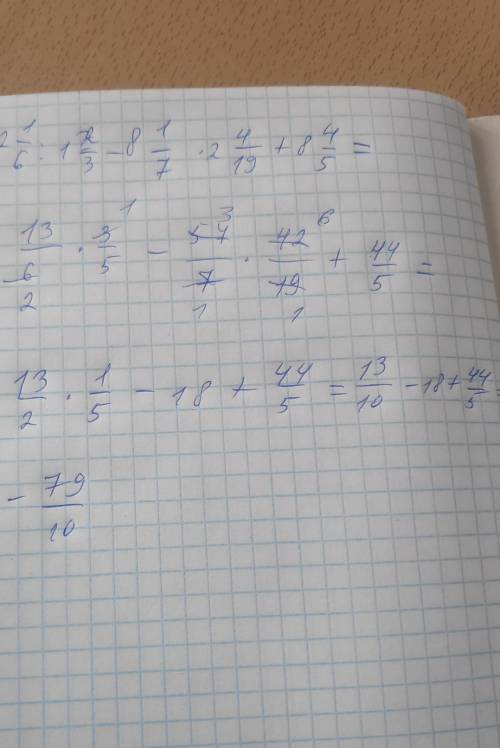 2 1/6 : 1 2/3 - 8 1/7 · 2 4/19 + 8 4/5 =
13/6 2 · 3/5 1 - 57/7 3 1 · 42/19 6 1 + 44/5 =
13/2 · 1/5 - 18 + 44/5 = 13/10 - 18 + 44/5 =
- 79/10